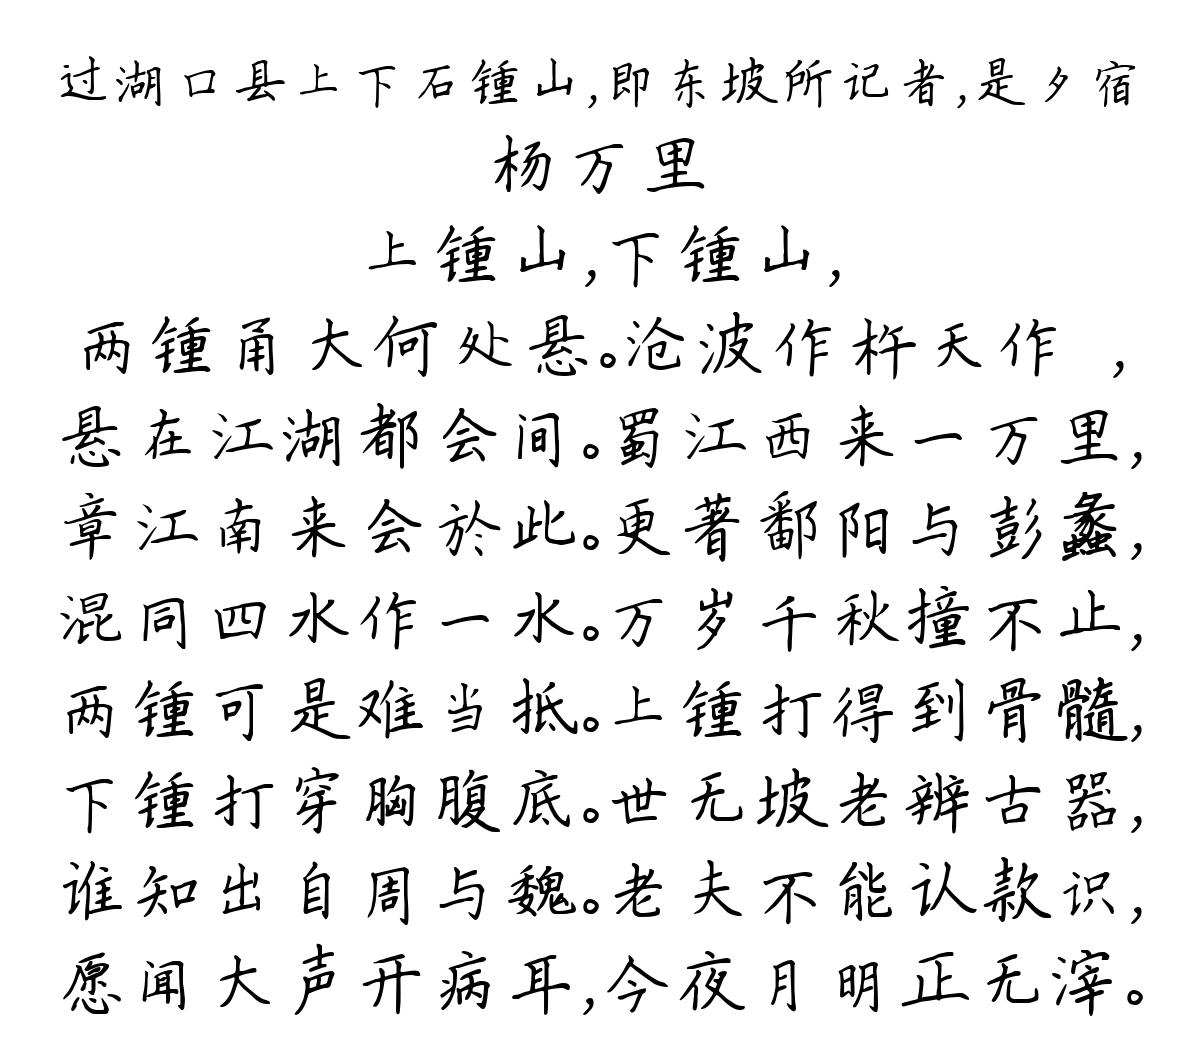 过湖口县上下石锺山,即东坡所记者,是夕宿
杨万里
上锺山,下锺山,
两锺甬大何处悬。沧波作杵天作 ,
悬在江湖都会间。蜀江西来一万里,
章江南来会於此。更著鄱阳与彭蠡,
混同四水作一水。万岁千秋撞不止,
两锺可是难当抵。上锺打得到骨髓,
下锺打穿胸腹底。世无坡老辨古器,
谁知出自周与魏。老夫不能认款识,
愿闻大声开病耳,今夜月明正无滓。